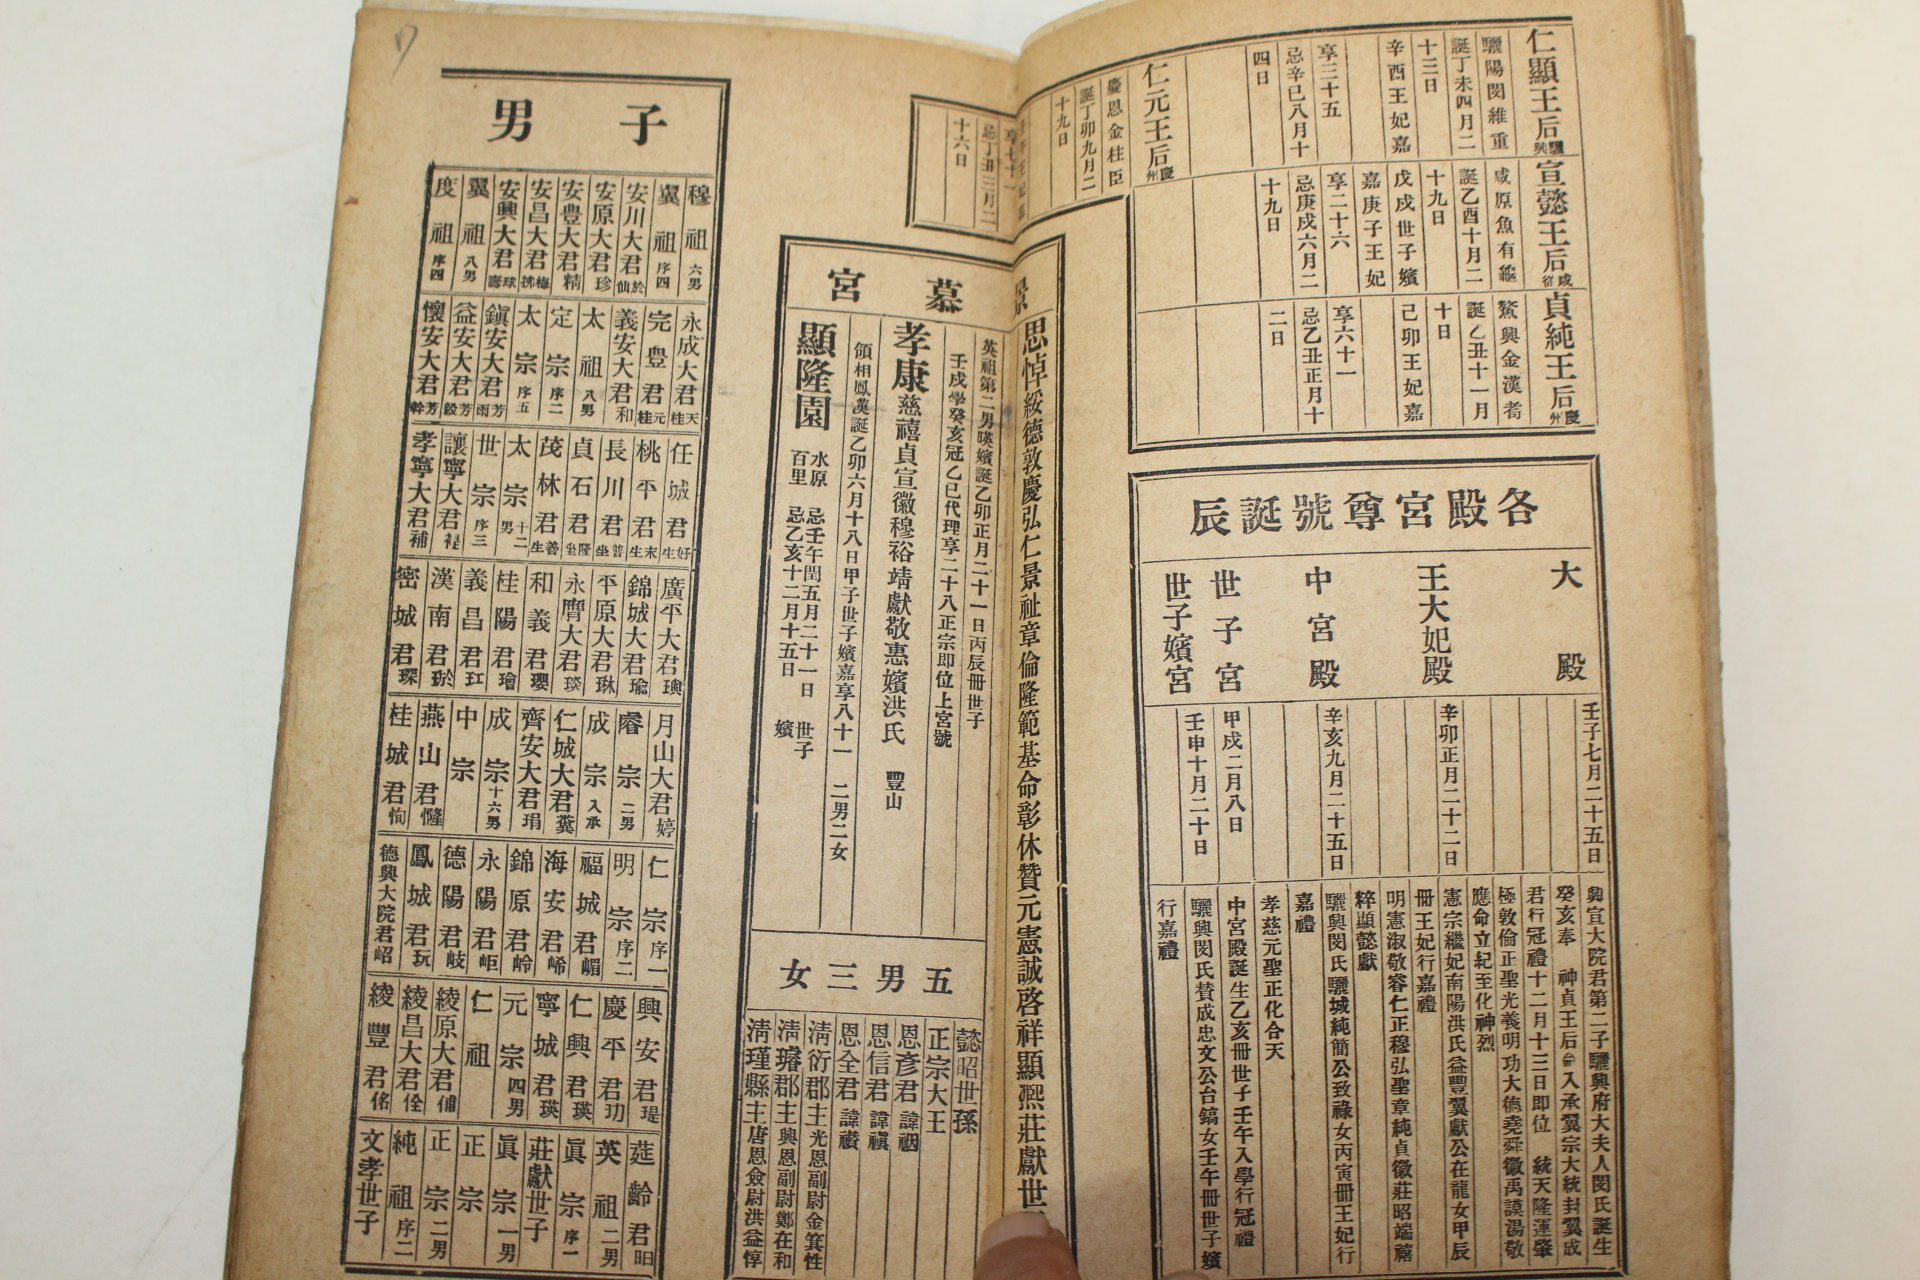 仁顯王后 驪興
驪陽閔維重
誕丁未四月二
十三日
辛酉王妃嘉
享三十五
忌辛巳八月十
四日
仁元王后 慶州
慶恩金柱臣
誕丁卯九月二
十九日
享七十一
忌丁丑三月二
十六日
宣懿王后 咸從
咸原魚有龜
誕乙酉十月二
十九日
戊戌世子嬪
嘉庚子王妃
享二十六
忌庚戌六月二
十九日
貞純王后 慶州
鰲興金漢耉
誕乙丑十一月
十日
己卯王妃嘉
享六十一
忌乙丑正月十
二日
各殿宮尊號誕辰
大殿
壬子七月二十五日
興宣大院君第二子驪興府大夫人閔氏誕生
癸亥奉 神貞王后命入承翼宗大統封翼成
君行冠禮十二月十三日即位 統天隆運肇
極敦倫正聖光義明功大德堯舜徽禹謨湯敬
應命立紀至化神烈
王大妃殿
辛卯正月二十二日
憲宗繼妃南陽洪氏益豐翼獻公在龍女甲辰
冊王妃行嘉禮
明憲淑敬睿仁正穆弘聖章純貞徽莊昭端禧
粹顯懿獻
中宮殿
辛亥九月二十五日
驪興閔氏驪城純簡公致祿女丙寅冊王妃行
嘉禮
孝慈元聖正化合天
世子宮
甲戌二月八日
中宮殿誕生乙亥冊世子壬午入學行冠禮
世子嬪宮
壬申十月二十日
驪興閔氏贊成忠文公台鎬女壬午冊世子嬪
行嘉禮
景慕宮
思悼綏德敦慶弘仁景祉章倫隆範基命彰休贊元憲誠啓祥顯熙莊獻世
英祖第二男暎嬪誕乙卯正月二十一日丙辰冊世子
壬戌學癸亥冠乙巳代理享二十八正宗即位上宮號
孝康慈禧貞宣徽穆裕靖獻敬惠嬪洪氏 豐山
領相鳳漢誕乙卯六月十八日甲子世子嬪嘉享八十一 二男二女
顯隆園 水原百里 忌壬午閏五月二十一日 世子
忌乙亥十二月十五日 嬪
五男三女
懿昭世孫
正宗大王
恩彥君 諱䄄
恩信君 諱禛
恩全君 諱禶
淸衍郡主 光恩副尉金箕性
淸璿郡主 興恩副尉鄭在和
淸瑾縣主 唐恩僉尉洪益惇
子男
穆祖 六男
翼祖 序四
安川大君 於仙
安原大君 珍
安豊大君 精
安昌大君 梅拂
安興大君 球壽
翼祖 八男
度祖 序四
永成大君 天桂
完豊君 元桂
義安大君 和
太祖 八男
定宗 序二
太宗 序五
鎭安大君 芳雨
益安大君 芳毅
懷安大君 芳幹
任城君 好生
桃平君 末生
長川君 普生
貞石君 隆生
茂林君 善生
太宗 十二男
世宗 序三
讓寧大君 禔
孝寧大君 補
廣平大君 璵
錦城大君 瑜
平原大君 琳
永膺大君 琰
和義君 瓔
桂陽君 璔
義昌君 玒
漢南君 𤥽
密城君 琛
月山大君 婷
睿宗 二男
成宗 入承
仁城大君 糞
齊安大君 琄
成宗 十六男
中宗
燕山君 㦕
桂城君 恂
仁宗 序一
明宗 序二
福城君 嵋
海安君 㟓
錦原君 岭
永陽君 岠
德陽君 岐
鳳城君 岏
德興大院君 岹
興安君 瑅
慶平君 玏
仁興君 瑛
寧城君 瑛
元宗 四男
仁祖
綾原大君 俌
綾昌大君 佺
綾豊君 佲
莚齡君 昍
英祖 二男
眞宗 序一
莊獻世子
眞宗 一男
正宗
正宗 二男
純祖 序二
文孝世子